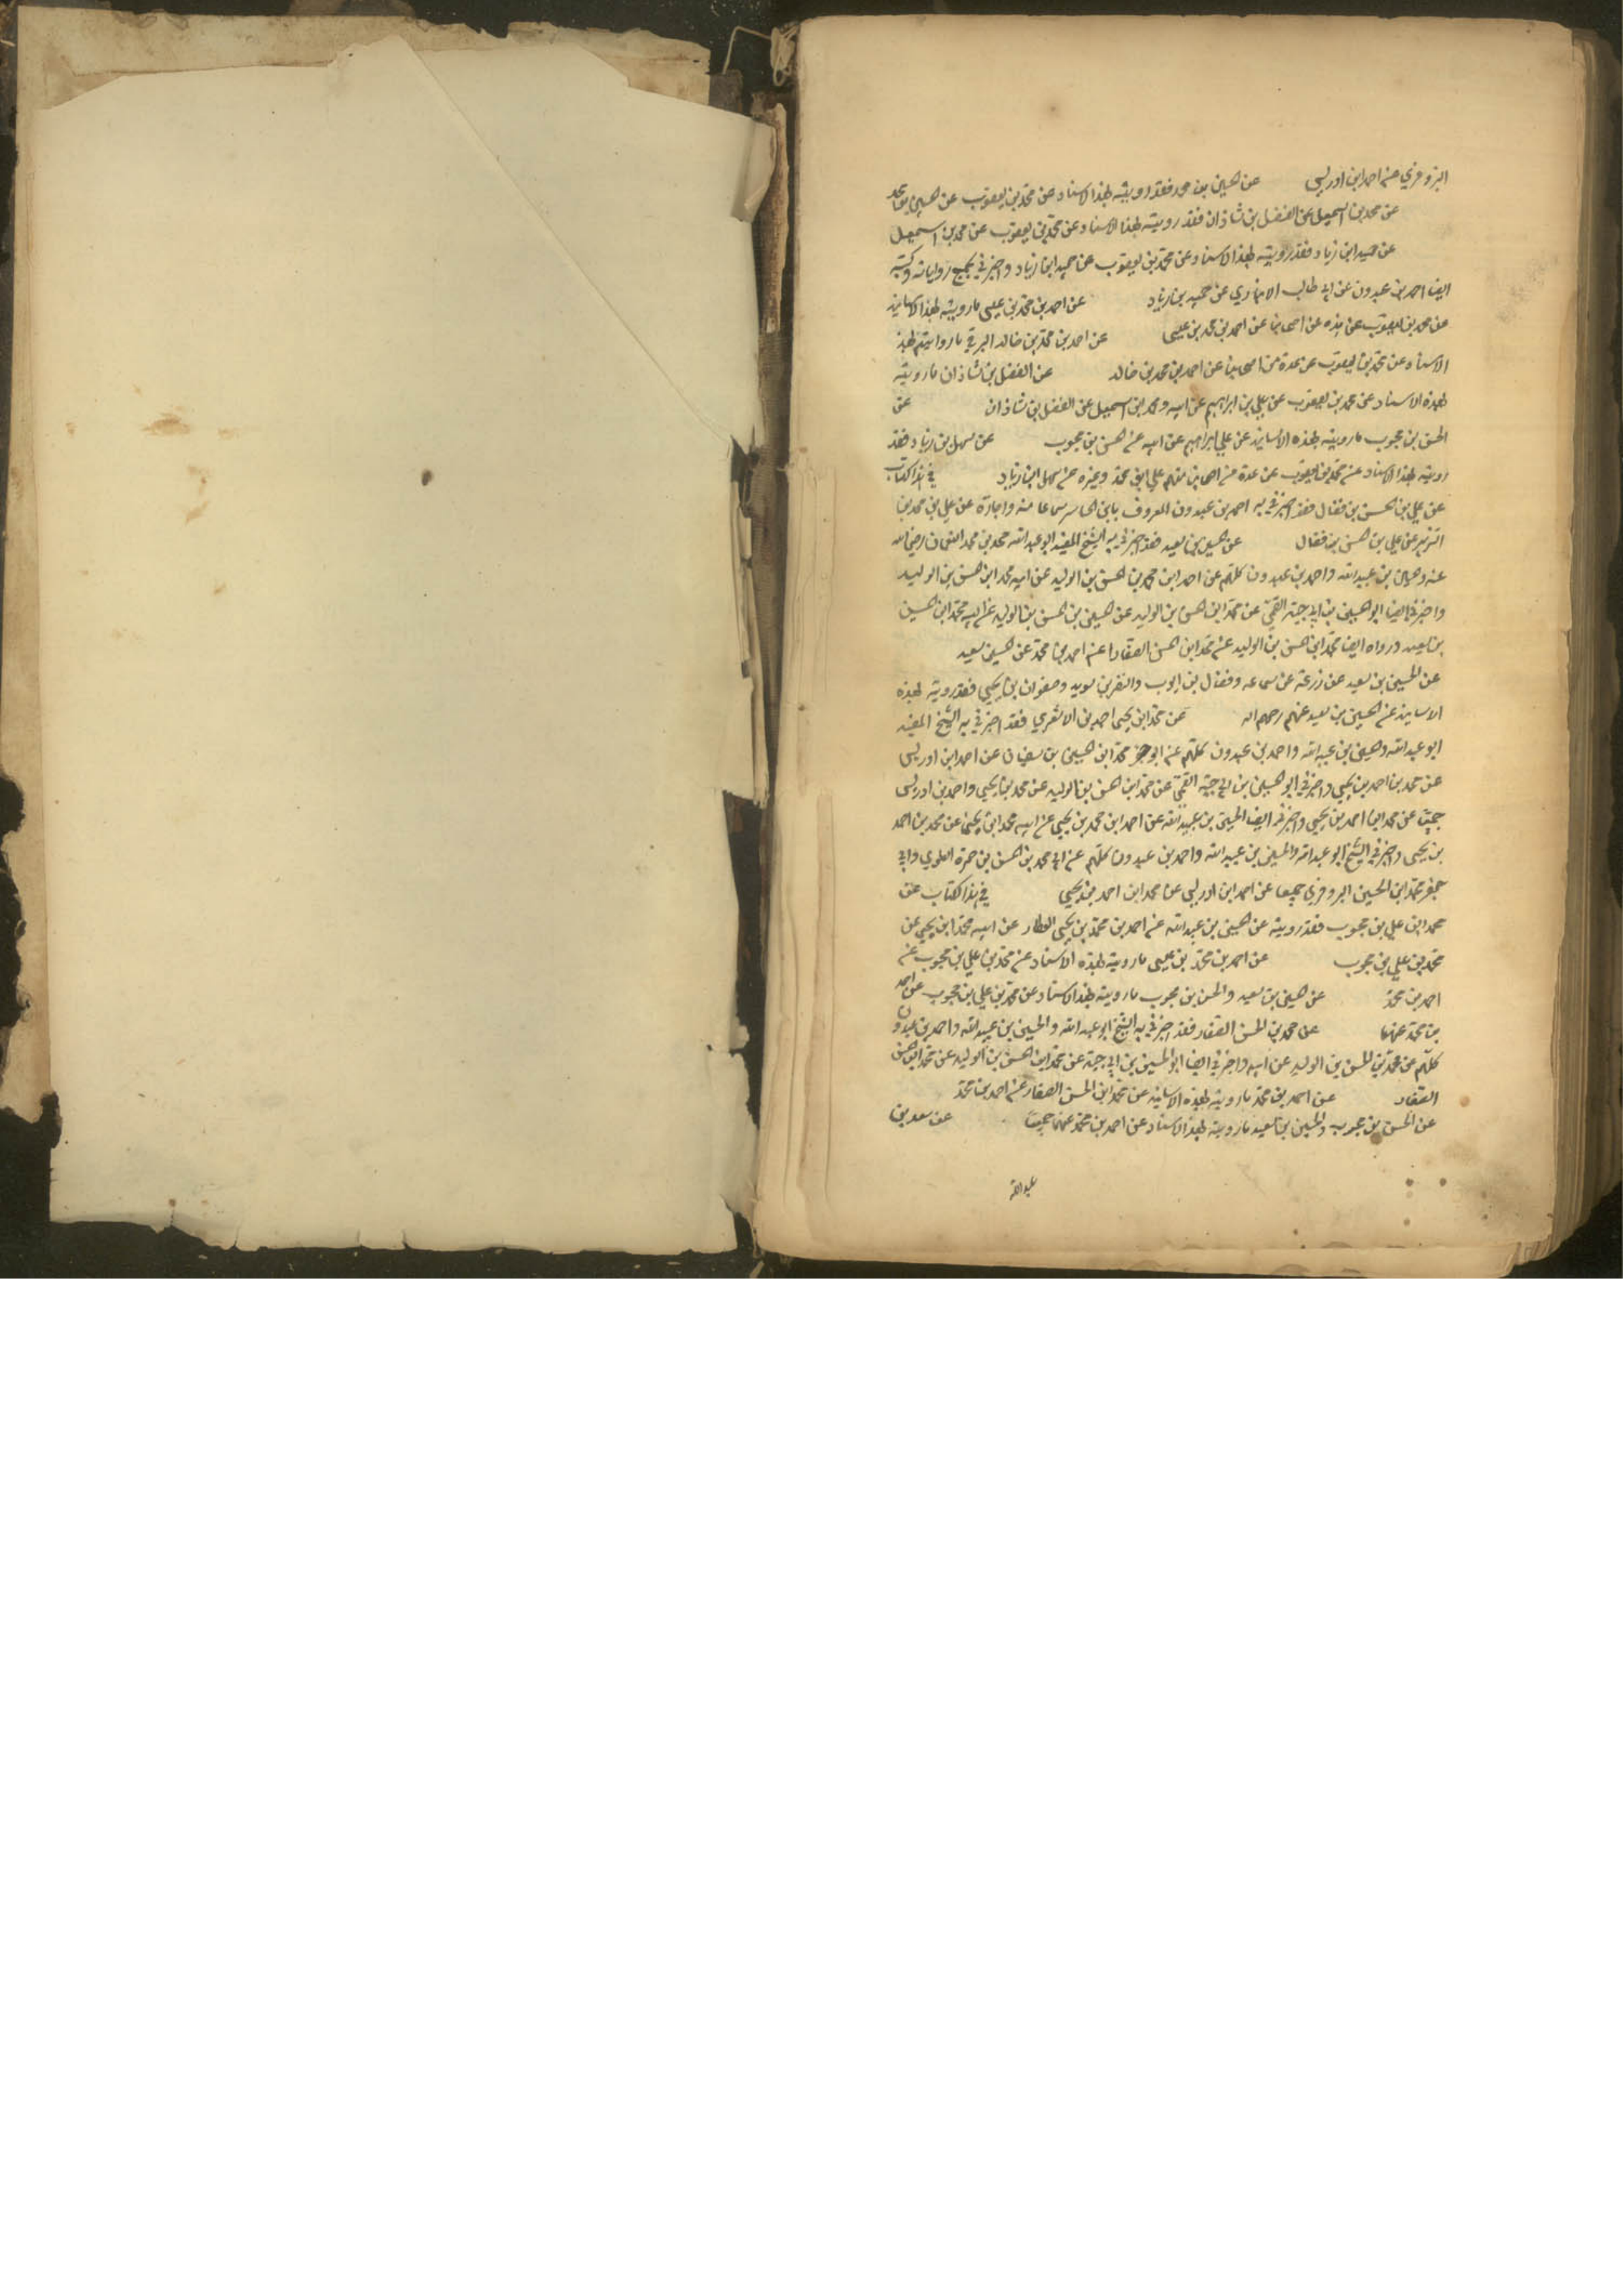 البزوفري عن احمد ابن ادريس عن حسين بن محمد فقد رويته بهذا الاسناد عن محمد بن يعقوب عن حسين بن محمد
عن محمد بن اسمعيل عن الفضل بن شاذان فقد رويته بهذا الاسناد عن محمد بن يعقوب عن محمد بن اسمعيل
عن حميد ابن زياد فقد رويته بهذا الاسناد عن محمد بن يعقوب عن حميد ابن زياد واخبرني بجميع رواياته وكتبه
ايضا احمد بن عبدون عن ابي طالب الانباري عن حميد بن زياد عن احمد بن محمد بن عيسى ما رويته بهذا الاسانيد
عن محمد بن يعقوب عن عدة عن اصحابنا عن احمد بن محمد بن عيسى عن احمد بن محمد بن خالد البرقي ما روايتم بهذا
الاسناد عن محمد بن يعقوب عن عدة من اصحابنا عن احمد بن محمد بن خالد عن الفضل بن شاذان ما رويته
بهذه الاسناد عن محمد بن يعقوب عن علي بن ابراهيم عن ابيه ومحمد ابن اسمعيل عن الفضل بن شاذان عن
الحسن بن محبوب ما رويته بهذه الاسانيد عن علي ابراهيم عن ابيه عن حسن بن محبوب عن سهل بن زياد فقد
رويته بهذا الاسناد عن محمد بن يعقوب عن عدة من اصحابنا منهم علي ابن محمد وغيره عن سهل ابن زياد في هذا الكتاب
عن علي بن الحسن بن فضال فقد اخبرني به احمد بن عبدون المعروف بابن الحاسر سماعا منه واجازة عن علي بن محمد بن
الزبير عن علي بن حسن بن فضال عن حسين بن سعيد فقد اخبرني به الشيخ المفيد ابو عبد الله محمد بن محمد النعمان رضي الله
عنه وحسين بن عبيد الله واحمد بن عبدون كلهم عن احمد ابن محمد بن حسن بن الوليد عن ابيه محمد ابن حسن بن الوليد
واخبرني ايضا ابو الحسين بن ابي جيد القمي عن محمد ابن حسن بن الوليد عن حسين بن الحسن بن الوليد عن ابيه محمد ابن حسين
بن سعيد ورواه ايضا محمد ابن حسن بن الوليد عن محمد ابن حسن الصفار عن احمد بن محمد عن حسين سعيد
عن الحسين بن سعيد عن زرعة عن سماعه وفضال بن ايوب والنضر بن سويد وصفوان بن يحيى فقد رويته بهذه
الاسانيد عن الحسين بن سعيد عنهم رحمهم الله عن محمد ابن يحيى احمد بن الاشعري فقد اخبرني به الشيخ المفيد
ابو عبد الله وحسين بن عبيد الله واحمد بن عبدون كلهم عن ابو جعفر محمد ابن حسين بن سفيان عن احمد ابن ادريس
عن محمد بن احمد بن يحيى واخبرني ابو الحسين بن ابي جيد القمي عن محمد ابن الحسن بن الوليد عن محمد بن يحيى واحمد بن ادريس
جميعا عن محمد ابن احمد بن يحيى واخبرني ايضا الحسين بن عبيد الله عن احمد ابن محمد بن يحيى عن ابيه محمد ابن يحيى عن محمد بن احمد
بن يحيى واخبرني الشيخ ابو عبد الله والحسين بن عبيد الله واحمد بن عبدون كلهم عن ابي محمد بن الحسن بن حمزة العلوي وابي
جعفر محمد ابن الحسين البزوفري جميعا عن احمد ابن ادريس عن محمد ابن احمد بن يحيى في هذا الكتاب عن
محمد ابن علي بن محبوب فقد رويته عن حسين بن عبيد الله عن احمد بن محمد بن يحيى العطار عن ابيه محمد ابن يحيى عن
محمد بن علي بن محبوب عن احمد بن محمد بن عيسى ما رويته بهذه الاسناد عن محمد بن علي بن محبوب عن
احمد بن محمد عن حسين بن سعيد والحسن بن محبوب ما رويته بهذا الاسناد عن محمد بن علي بن محبوب عن احمد
بن محمد عنهما عن محمد بن الحسن الصفار فقد اخبرني به الشيخ ابو عبد الله والحسين بن عبيد الله واحمد بن عبدون
كلهم عن محمد بن الحسن بن الوليد عن ابيه واخبرني ايضا ابو الحسين بن ابي جيد عن محمد ابن الحسن بن الوليد عن محمد ابن حسن
الصفار عن احمد بن محمد ما رويته بهذه الاسانيد عن محمد ابن الحسن الصفار عن احمد بن محمد
عن الحسن بن محبوب والحسين بن سعيد ما رويته بهذا الاسناد عن احمد بن محمد عنهما جميعا عن سعد بن
عبد الله